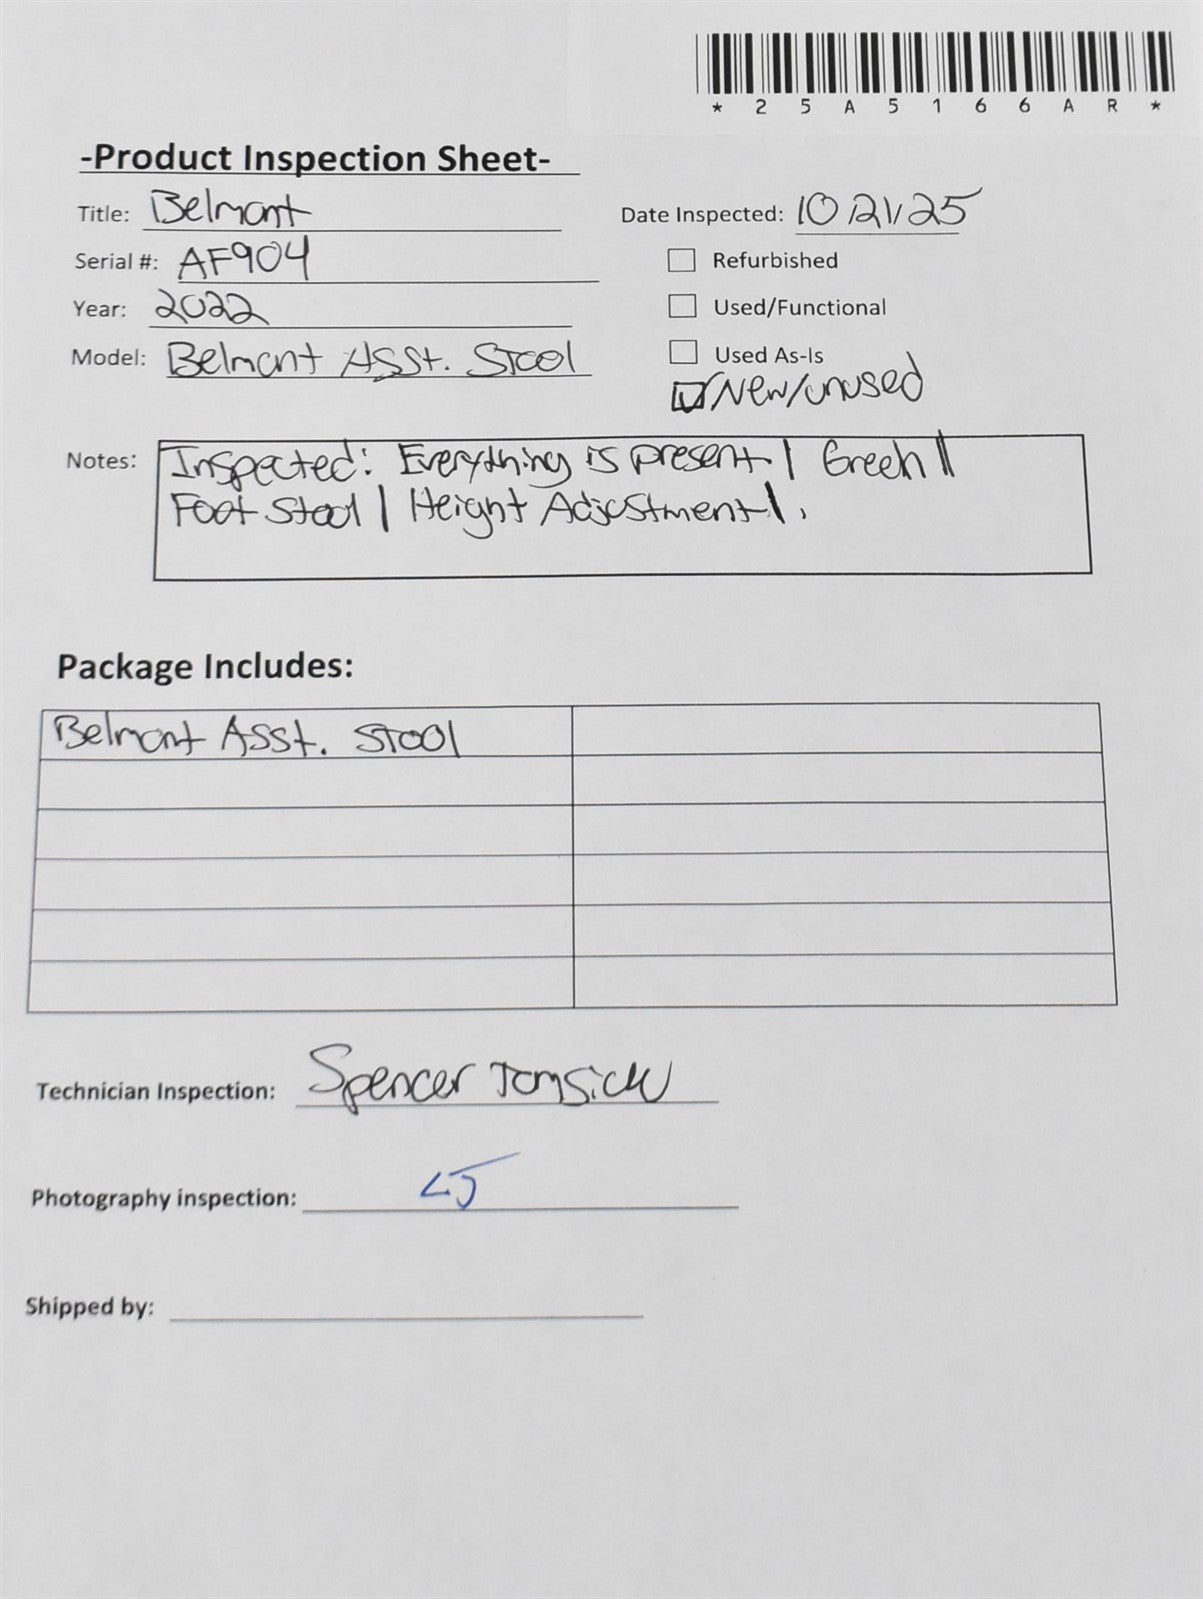 *25A5166AR*
-Product Inspection Sheet-
Title: Belmont
Date Inspected: 10/21/25
Serial #: AF904
Refurbished
Year: 2022
Used/Functional
Model: Belmont Asst. Stool
Used As-Is
New/unused
Notes: Inspected: Everything is present | Green ||
Foot Stool | Height Adjustment | .
Package Includes:
Belmont Asst. Stool
Technician Inspection: Spencer Tomsick
Photography inspection: LJ
Shipped by: